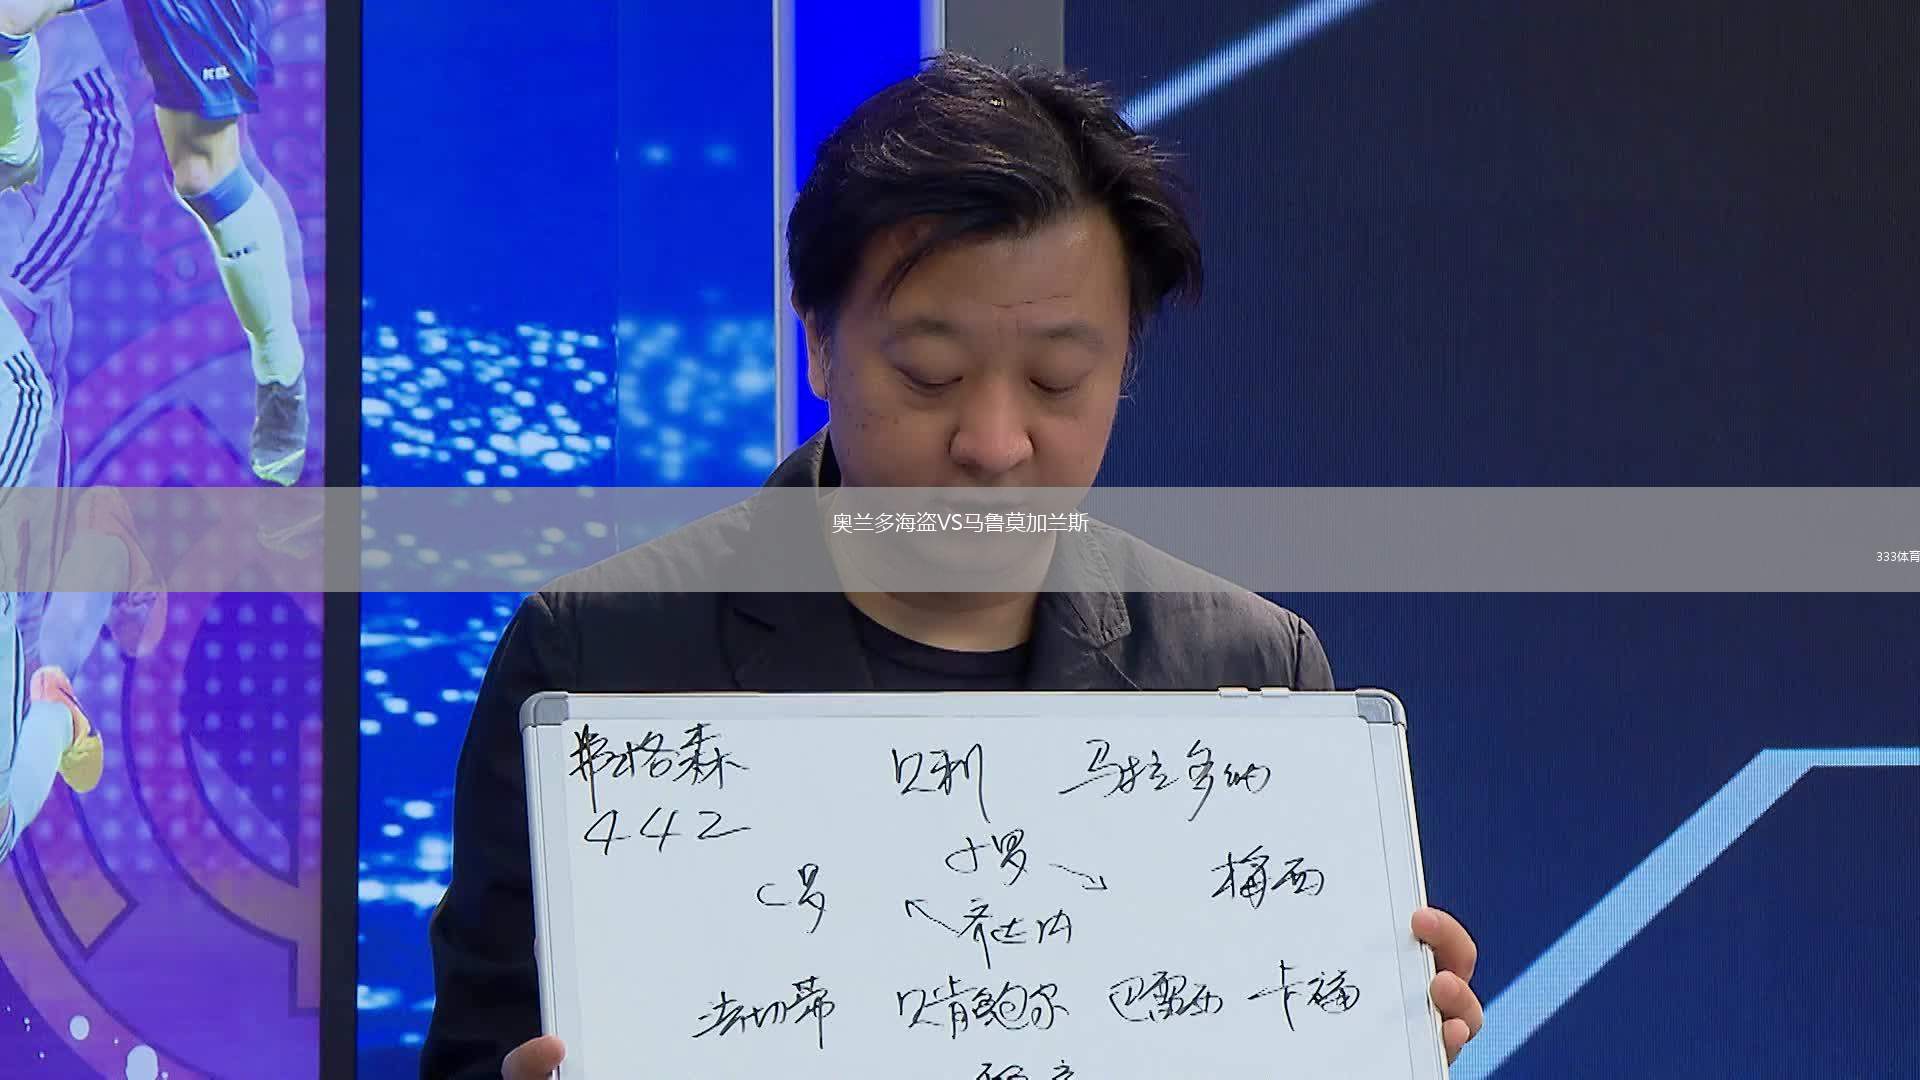 奥兰多海盗VS马鲁莫加兰斯
333体育
弗格森 贝利 马拉多纳
442
小罗
C罗 梅西
齐达内
法切蒂 贝肯鲍尔 巴雷西 卡福